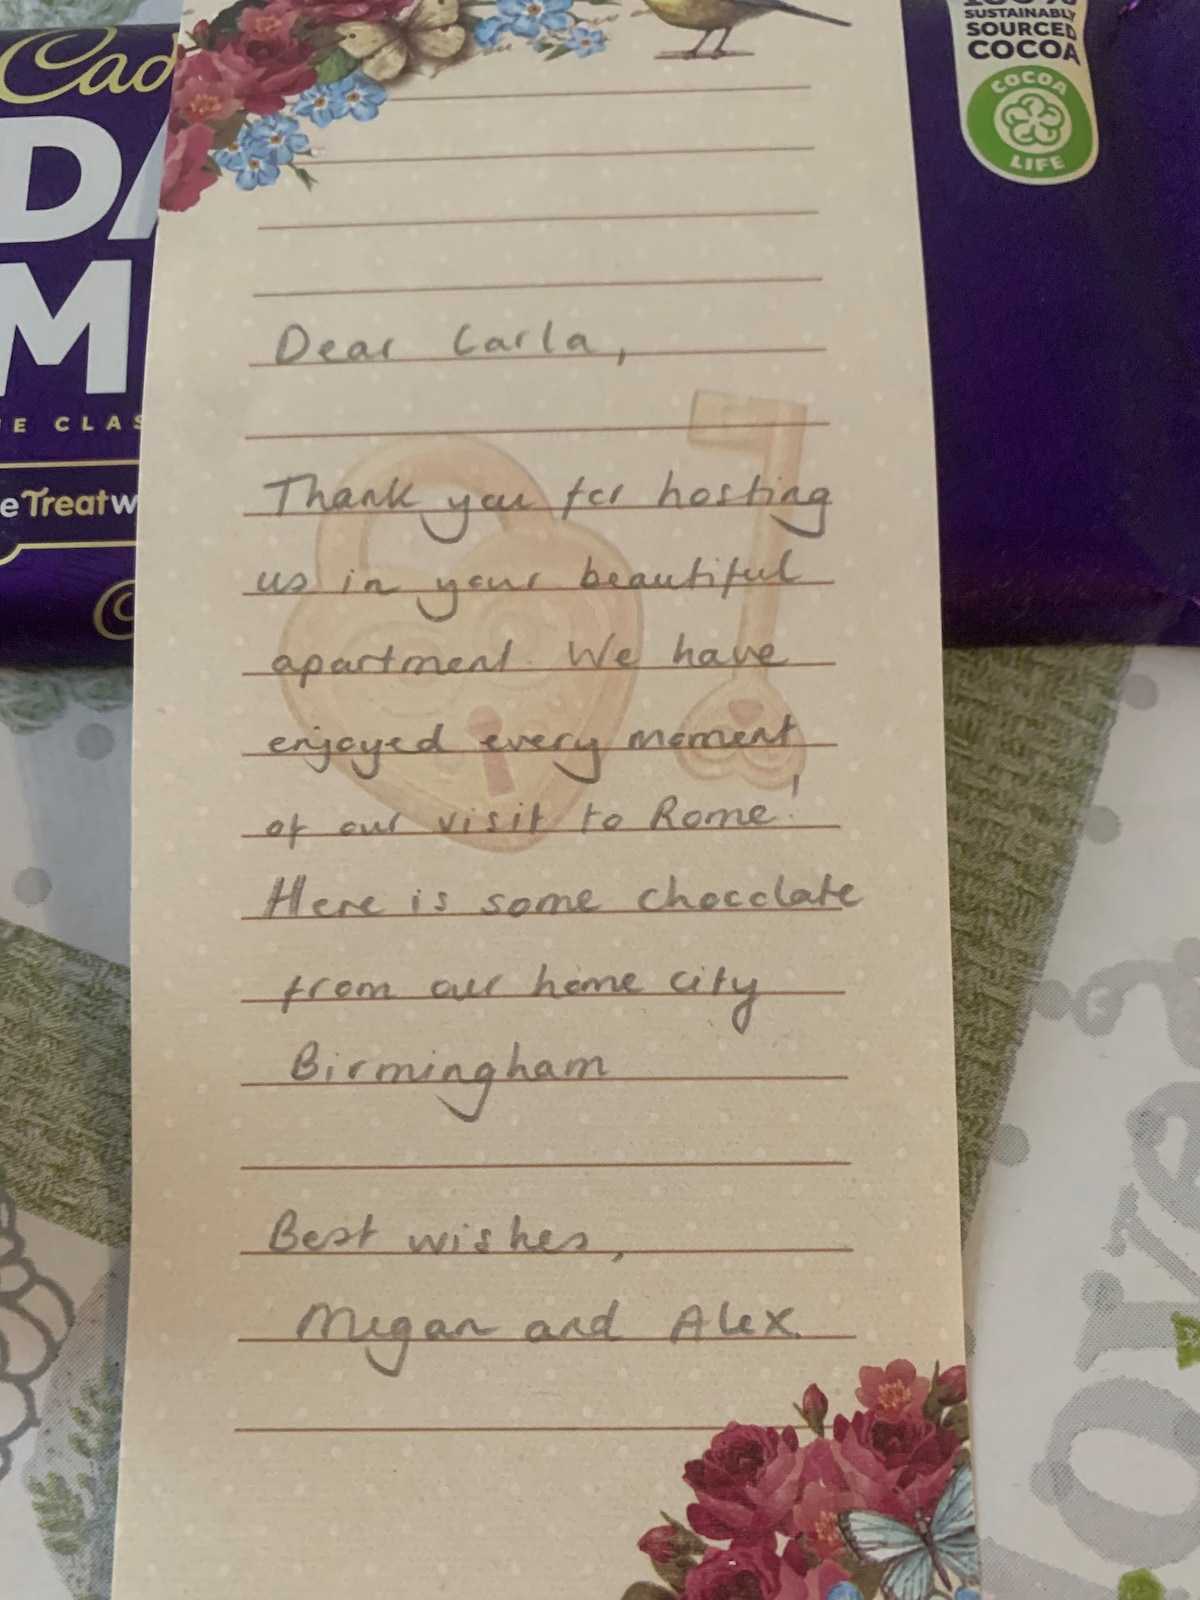 Cad
DA
M
E CLAS
eTreatw
100%
SUSTAINABLY
SOURCED
COCOA
COCOA
LIFE
Dear Carla,
Thank you for hosting
us in your beautiful
apartment. We have
enjoyed every moment
of our visit to Rome!
Here is some chocolate
from our home city
Birmingham
Best wishes,
Megan and Alex.